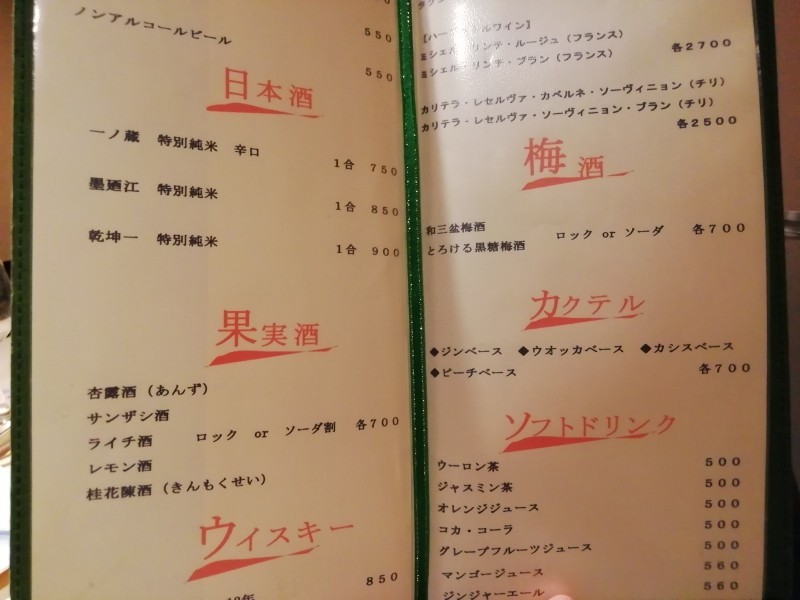 ノンアルコールビール 550
550
日本酒
一ノ蔵 特別純米 辛口
1合 750
墨廼江 特別純米
1合 850
乾坤一 特別純米
1合 900
果実酒
杏露酒（あんず）
サンザシ酒
ライチ酒 ロック or ソーダ割 各700
レモン酒
桂花陳酒（きんもくせい）
ウィスキー
850
【ハーフボトルワイン】
ミシェル・リンチ・ルージュ（フランス）
ミシェル・リンチ・ブラン（フランス） 各2700
カリテラ・レセルヴァ・カベルネ・ソーヴィニョン（チリ）
カリテラ・レセルヴァ・ソーヴィニョン・ブラン（チリ）
各2500
梅酒
和三盆梅酒
とろける黒糖梅酒 ロック or ソーダ 各700
カクテル
◆ジンベース ◆ウオッカベース ◆カシスベース
◆ピーチベース 各700
ソフトドリンク
ウーロン茶 500
ジャスミン茶 500
オレンジジュース 500
コカ・コーラ 500
グレープフルーツジュース 500
マンゴージュース 560
ジンジャーエール 560